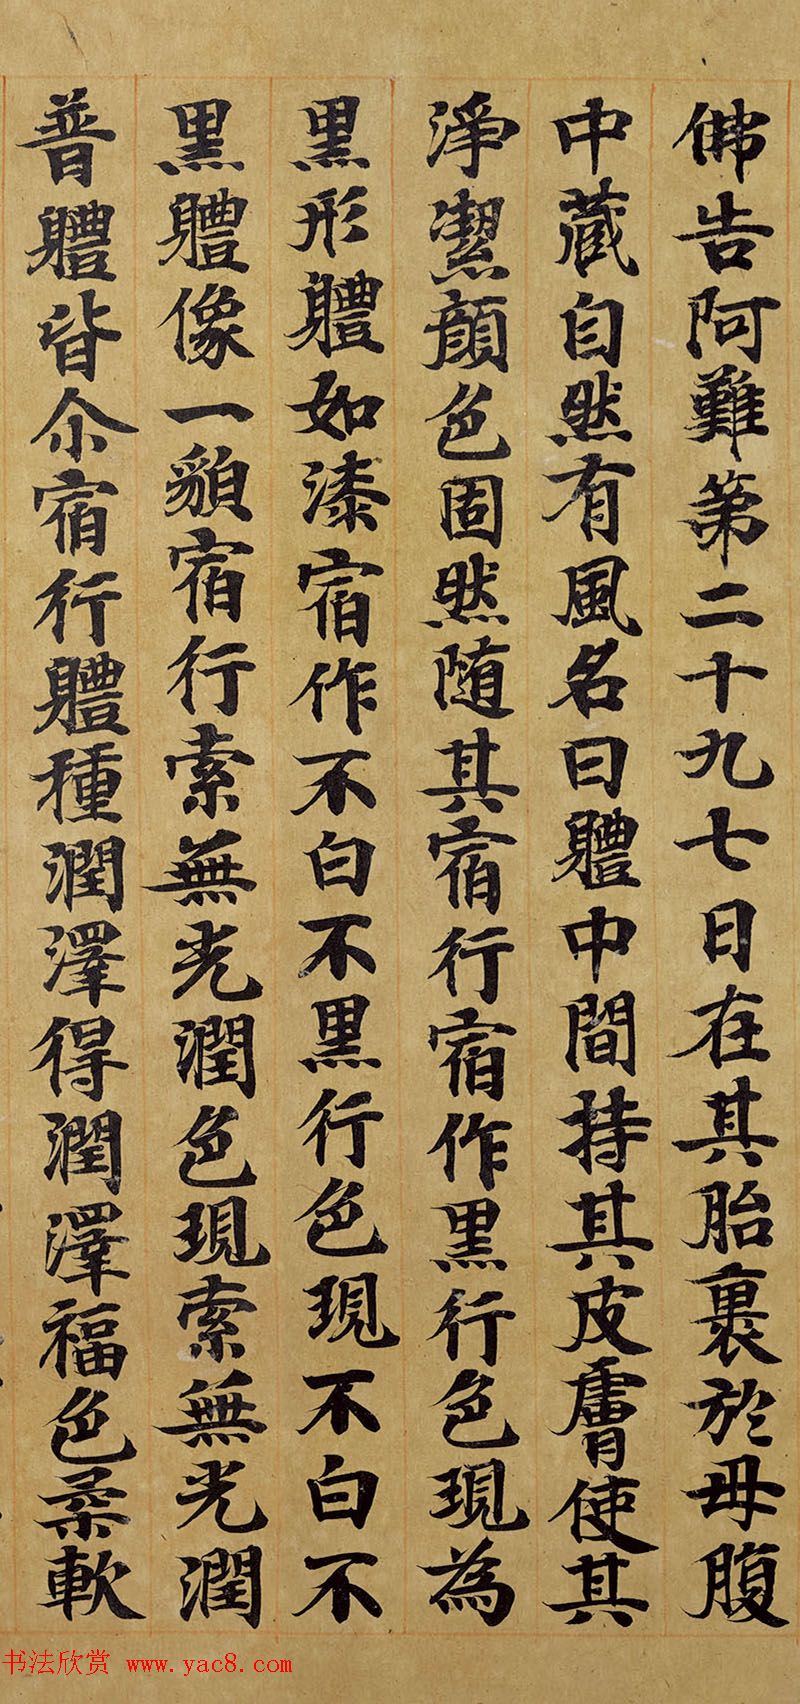 佛告阿難第二十九七日在其胎裹於母腹
中藏自然有風名曰軆中間持其皮膚使其
淨潔顔色固然随其宿行宿作黒行色現為
黒形軆如漆宿作不白不黒行色現不白不
黒軆像一貌宿行索無光潤色現索無光潤
普軆皆尒宿行軆種潤澤得潤澤福色柔軟
书法欣赏 www.yac8.com